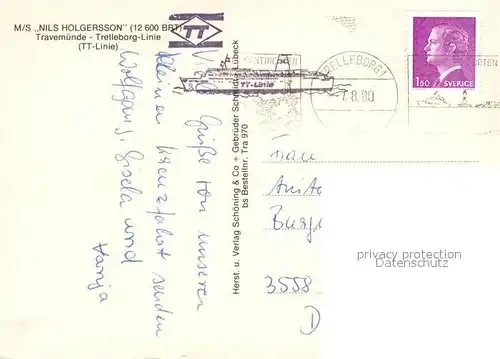 M/S „NILS HOLGERSSON" (12 600 BRT)
Travemünde - Trelleborg-Linie
(TT-Linie)
TT
TT-Linie
TRELLEBORG 1
8.80
1.50 SVERIGE
Viele Grüße von unserer
kleinen Kreuzfahrt senden
Wolfgang, Gisela und
Herst. u. Verlag Schöning & Co + Gebrüder Schmidt, Lübeck
bs Bestellnr. Tra 970
Frau
3558
D
privacy protection
Datenschutz